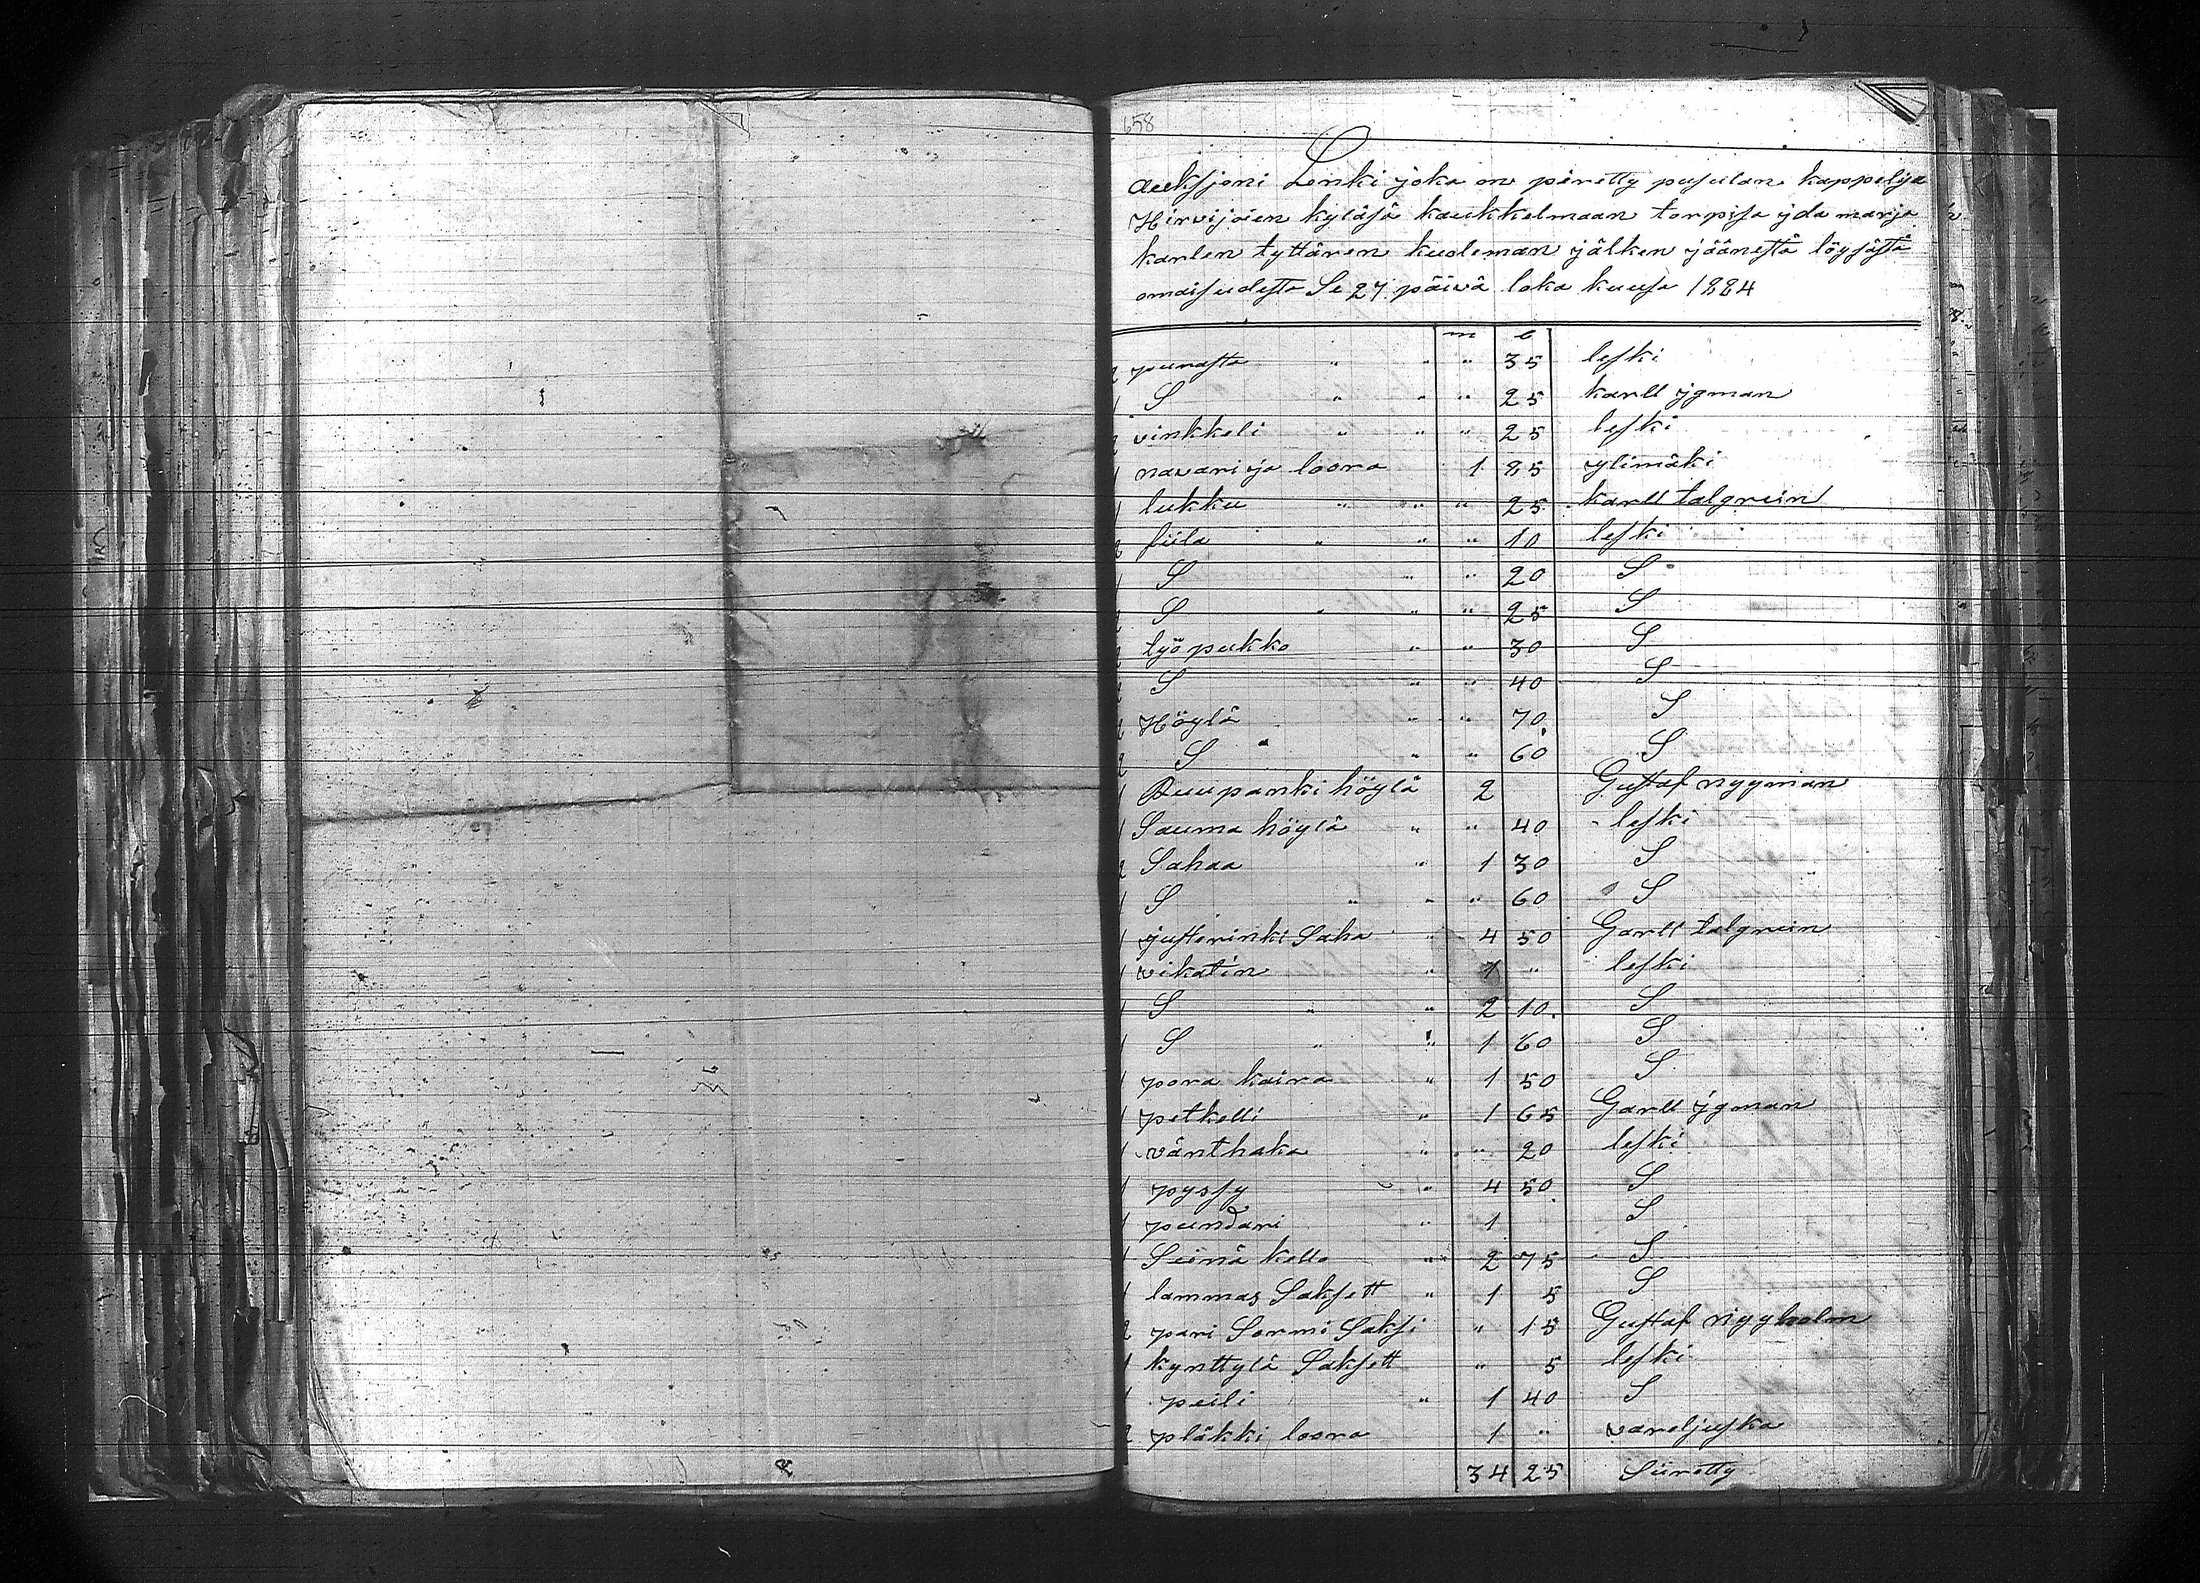 658
Auksjoni Lenki joka on piretty pusulan kappelisa
Hirvijoen kyläsä kaukkelmaan torpisa yda marja
karlen tyttären kuoleman jälken jäänestä löysästä
omaisudesta Se 27 päivä loka kuusa 1884
m p
2 purasta " " " 35 leski
1 S " " " 25 karll ygman
2 vinkkeli " " " 25 leski
1 navari ja loora 1 85 ylimäki
1 lukku " " " 25 karll talgrein
2 fiila " " " 10 leski
1 S " " 20 S
2 S " " " 25 S
2 työ pukko " " 30 S
2 S " " 40 S
2 Höylä " " 70 S
2 S " " 60 S
1 Ruupanki höylä 2 Gustaf nygman
1 Sauma höylä " " 40 leski
2 Sahaa " 1 30 S
1 S " " " 60 S
1 justerinki Saha " 4 50 Garll talgrein
1 vikatin " 1 " leski
1 S " " 2 10 S
1 S " " 1 60 S
1 pora kaira " 1 50 S
1 petkelli " 1 65 Garll ygman
1 vänthaka " " 20 leski
1 pyssy " 4 50 S
1 pundari " 1 S
1 Seinä kello " 2 75 S
1 lammas Saksett " 1 5 S
2 pari Sormi Saksi " 15 Gustaf nygholm
1 kynttylä Saksett " 5 leski
1 peili " 1 40 S
2 pläkki loora 1 " vareljuska
34 25 Siiretty